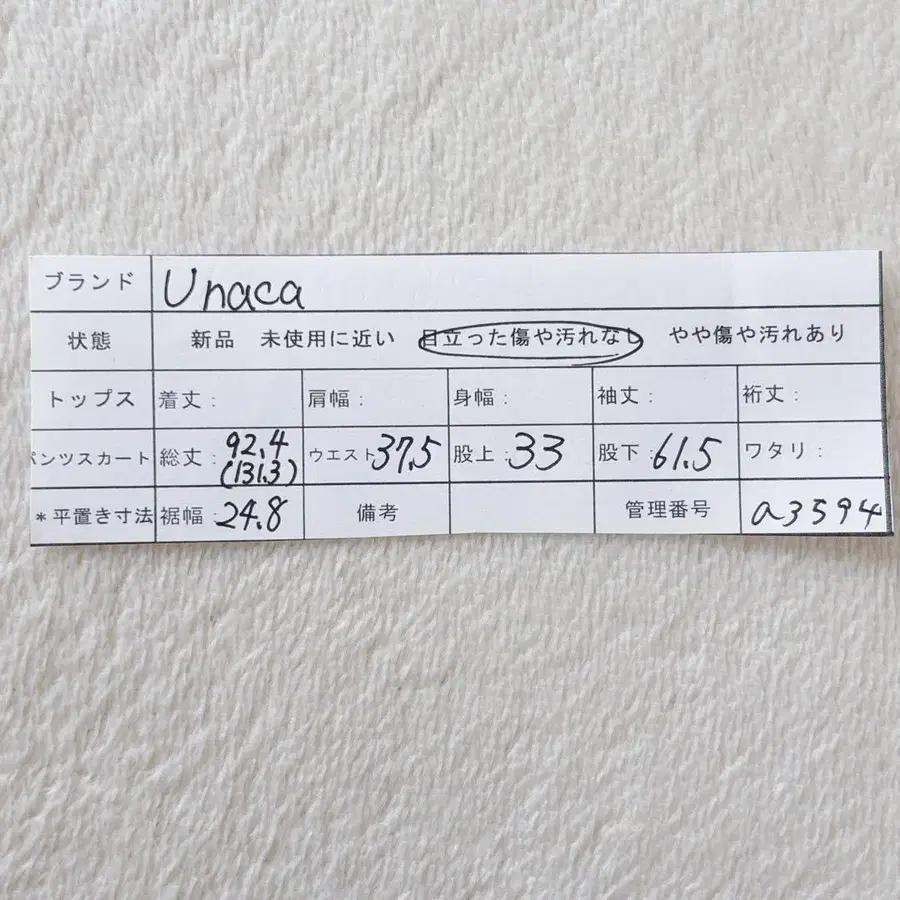 ブランド Unaca
状態 新品 未使用に近い 目立った傷や汚れなし やや傷や汚れあり
トップス 着丈: 肩幅: 身幅: 袖丈: 裄丈:
パンツスカート 総丈: 92.4 (131.3) ウエスト 37.5 股上: 33 股下: 61.5 ワタリ:
*平置き寸法 裾幅: 24.8 備考 管理番号 a3594